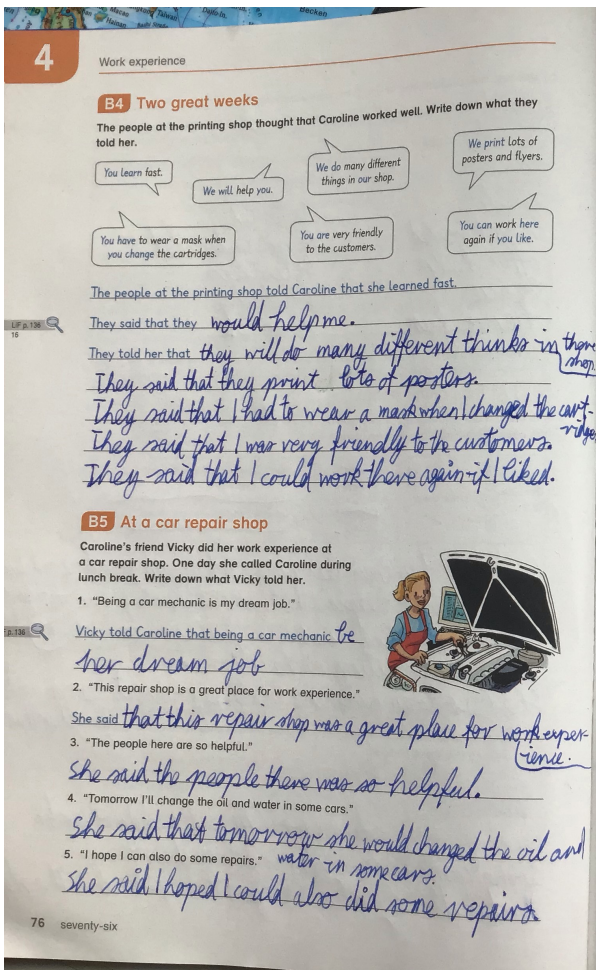 Macao
Taiwan
Hainan
Becken
4
Work experience
B4 Two great weeks
The people at the printing shop thought that Caroline worked well. Write down what they
told her.
You learn fast.
We will help you.
We do many different
things in our shop.
We print lots of
posters and flyers.
You have to wear a mask when
you change the cartridges.
You are very friendly
to the customers.
You can work here
again if you like.
The people at the printing shop told Caroline that she learned fast.
LiF p. 136
16
They said that they would help me.
They told her that they will do many different thinks in there
shop.
They said that they print lots of posters.
They said that I had to wear a mask when I changed the cart-
ridges
They said that I was very friendly to the customers.
They said that I could work there again if I liked.
B5 At a car repair shop
Caroline's friend Vicky did her work experience at
a car repair shop. One day she called Caroline during
lunch break. Write down what Vicky told her.
1. "Being a car mechanic is my dream job."
p. 136
Vicky told Caroline that being a car mechanic be
her dream job
2. "This repair shop is a great place for work experience."
She said that this repair shop was a great place for work exper-
ience.
3. "The people here are so helpful."
She said the people there was so helpful.
4. "Tomorrow I'll change the oil and water in some cars."
She said that tomorrow she would changed the oil and
water in some cars.
5. "I hope I can also do some repairs."
She said I hoped I could also did some repairs.
76 seventy-six